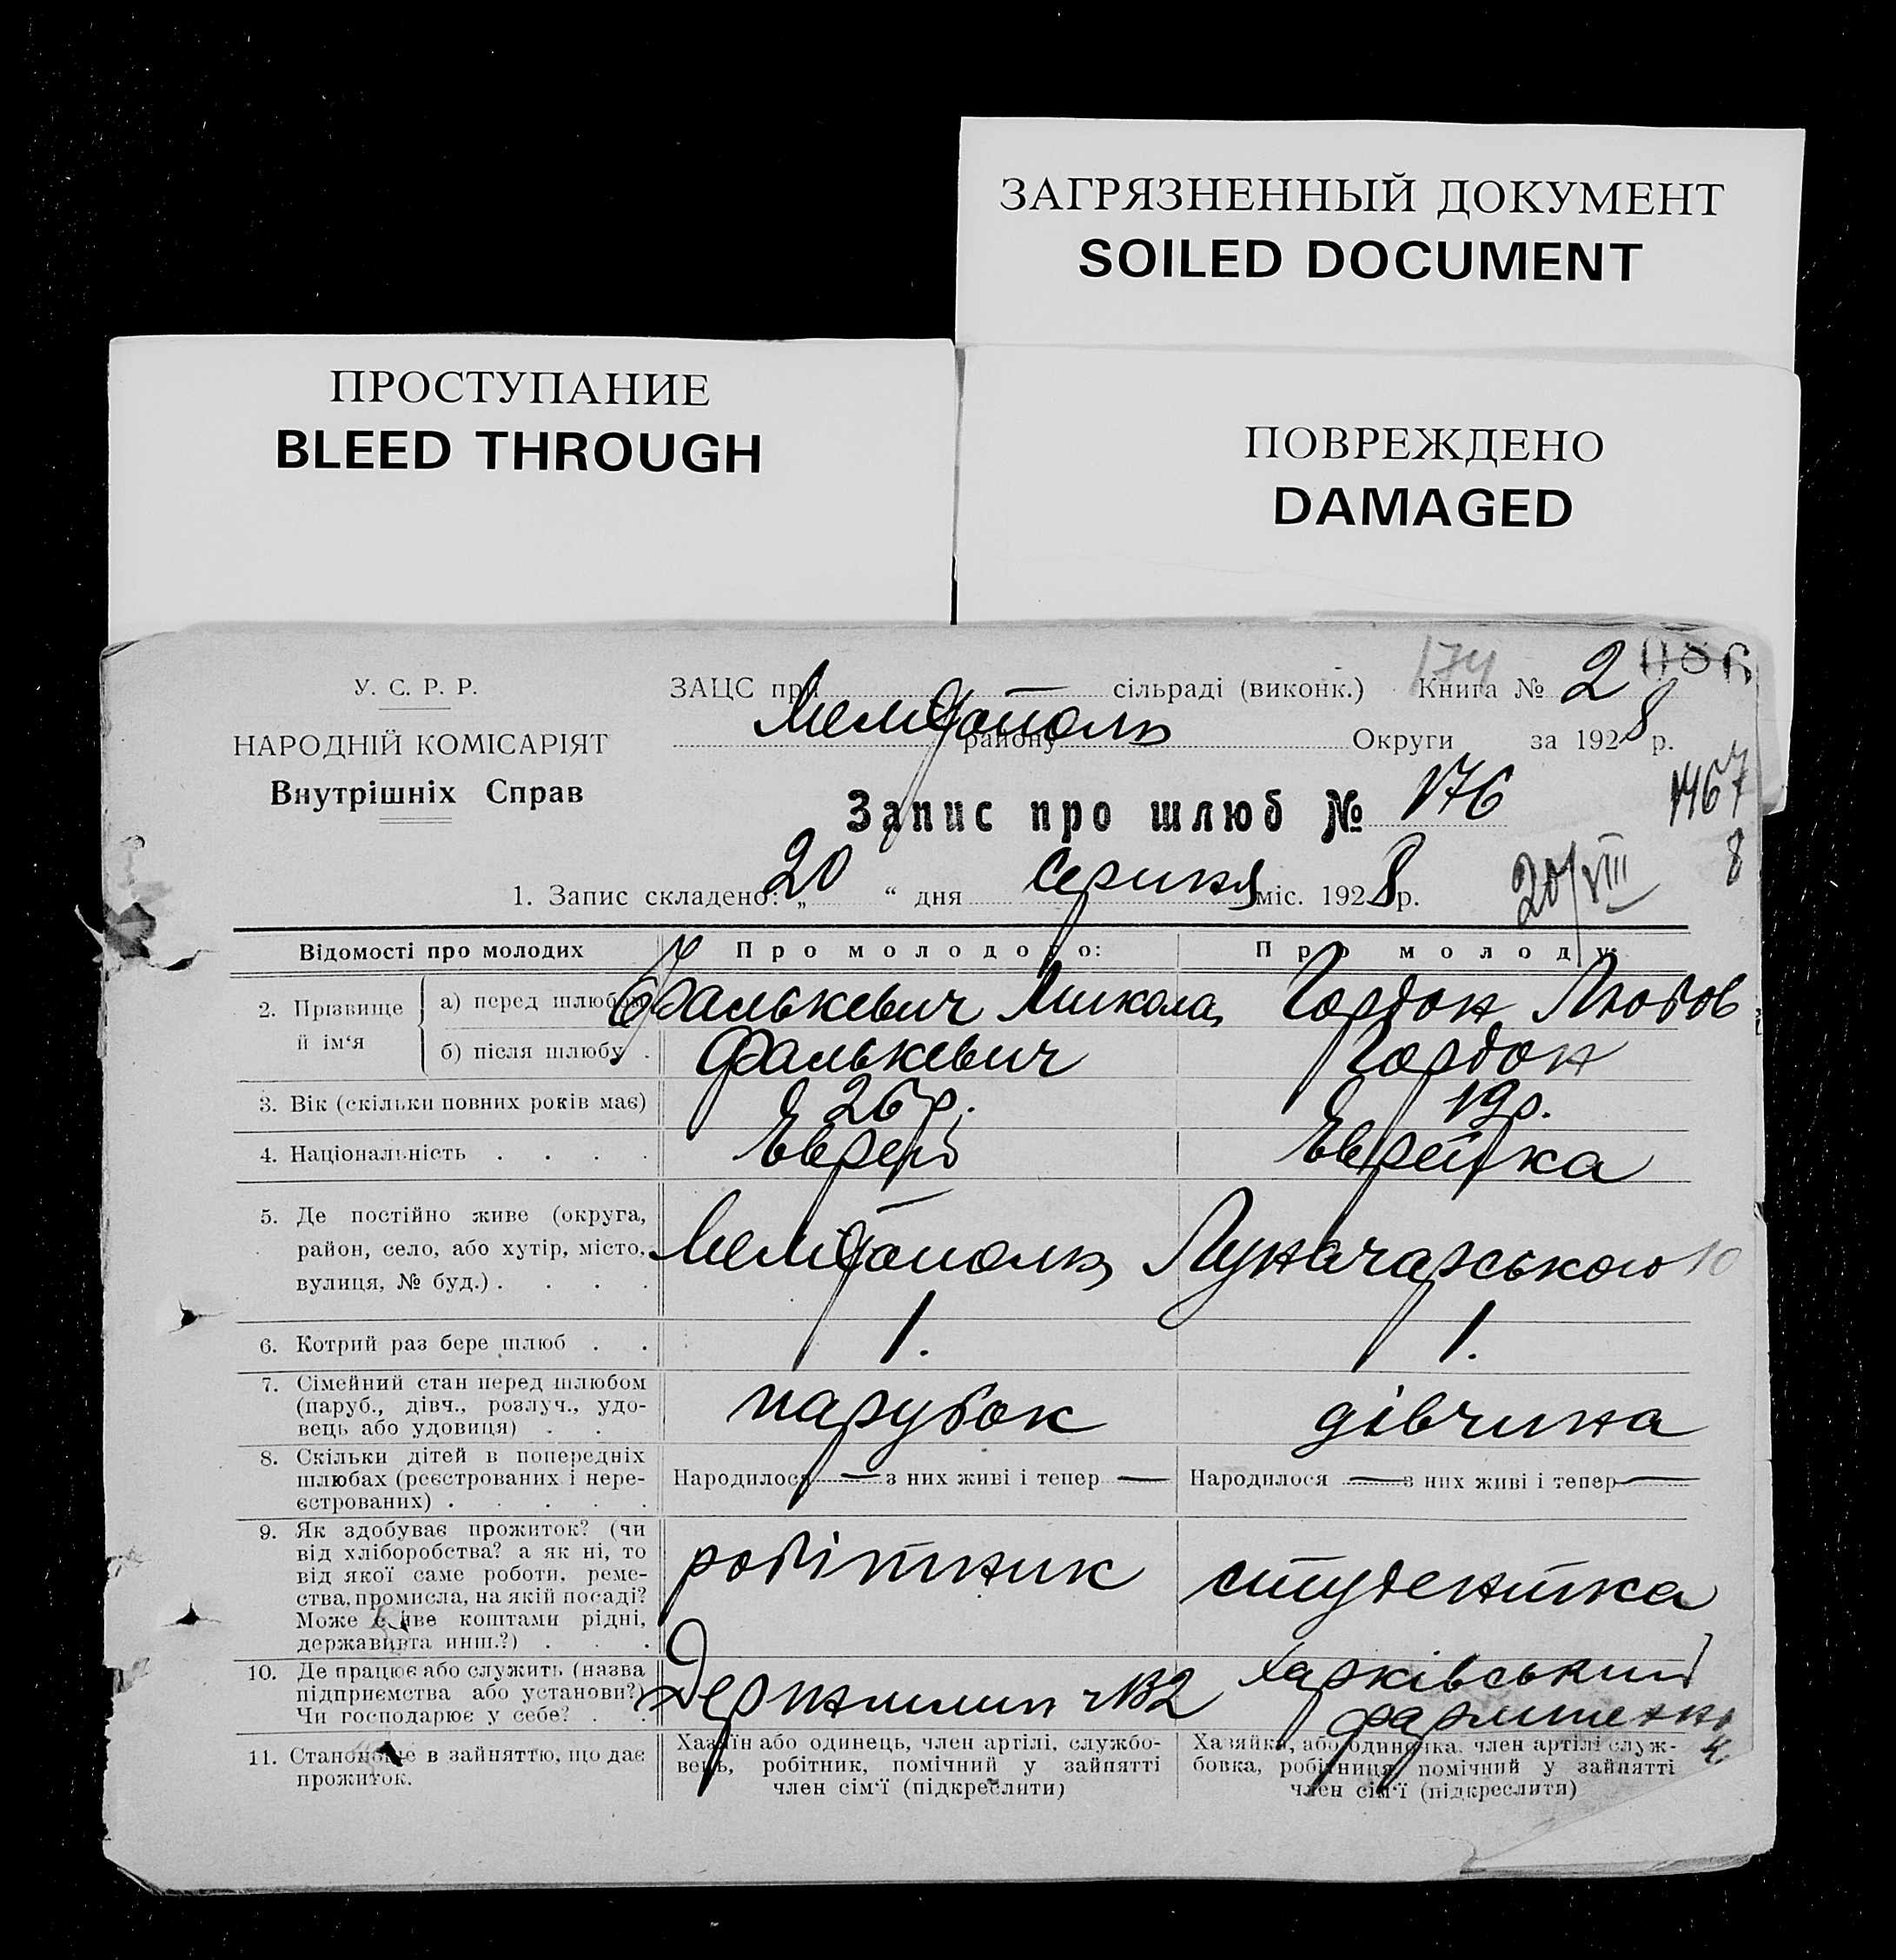 ЗАГРЯЗНЕННЫЙ ДОКУМЕНТ
SOILED DOCUMENT
ПРОСТУПАНИЕ
BLEED THROUGH
ПОВРЕЖДЕНО
DAMAGED
174
У. С. Р. Р.
НАРОДНІЙ КОМІСАРІЯТ
Внутрішніх Справ
ЗАЦС при сільраді (виконк.) Книга № 2
Мелітополь району Округи за 1928 р.
Запис про шлюб № 176
1467
8
1. Запис складено: „20“ дня Серпня міс. 1928 р.
20/VIII
Відомості про молодих Про молодого: Про молоду:
2. Прізвище й ім'я а) перед шлюбом Фалькевич Микола Гордон Любов
б) після шлюбу . Фалькевич Гордон
3. Вік (скільки повних років має) 26 р. 19 р.
4. Національність . . . . Еврей Еврейка
5. Де постійно живе (округа,
район, село, або хутір, місто,
вулиця, № буд.) . . . . Мелітополь Луначарського 10
6. Котрий раз бере шлюб . . 1. 1.
7. Сімейний стан перед шлюбом
(паруб., дівч., розлуч., удо-
вець або удовиця) . . . парубок дівчина
8. Скільки дітей в попередніх
шлюбах (реєстрованих і нере-
єстрованих) . . . . . Народилося — з них живі і тепер — Народилося — з них живі і тепер —
9. Як здобуває прожиток? (чи
від хліборобства? а як ні, то
від якої саме роботи, реме-
ства, промисла, на якій посаді?
Може живе коштами рідні,
державн та инш.?) . . . робітник студентка
10. Де працює або служить (назва
підприємства або установи?)
Чи господарює у себе? . . Держмлин №2 Харківський
11. Становище в зайняттю, що дає
прожиток.
Хазяїн або одинець, член артілі, службо-
вець, робітник, помічний у зайнятті
член сім'ї (підкреслити)
Хазяйка, або одиначка, член артілі служ-
бовка, робітниця, помічний у зайнятті
член сім'ї (підкреслити)